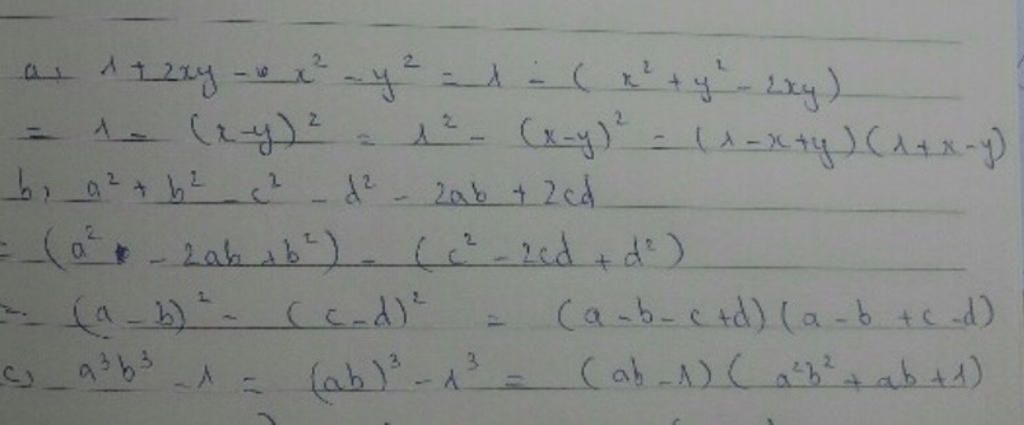 a, 1 + 2xy - x² - y² = 1 - ( x² + y² - 2xy )
= 1 - (x-y)² = 1² - (x-y)² = (1-x+y)(1+x-y)
b, a² + b² - c² - d² - 2ab + 2cd
= (a² - 2ab + b²) - (c² - 2cd + d²)
= (a-b)² - (c-d)² = (a-b-c+d)(a-b+c-d)
c, a³b³ - 1 = (ab)³ - 1³ = (ab-1)(a²b² + ab + 1)